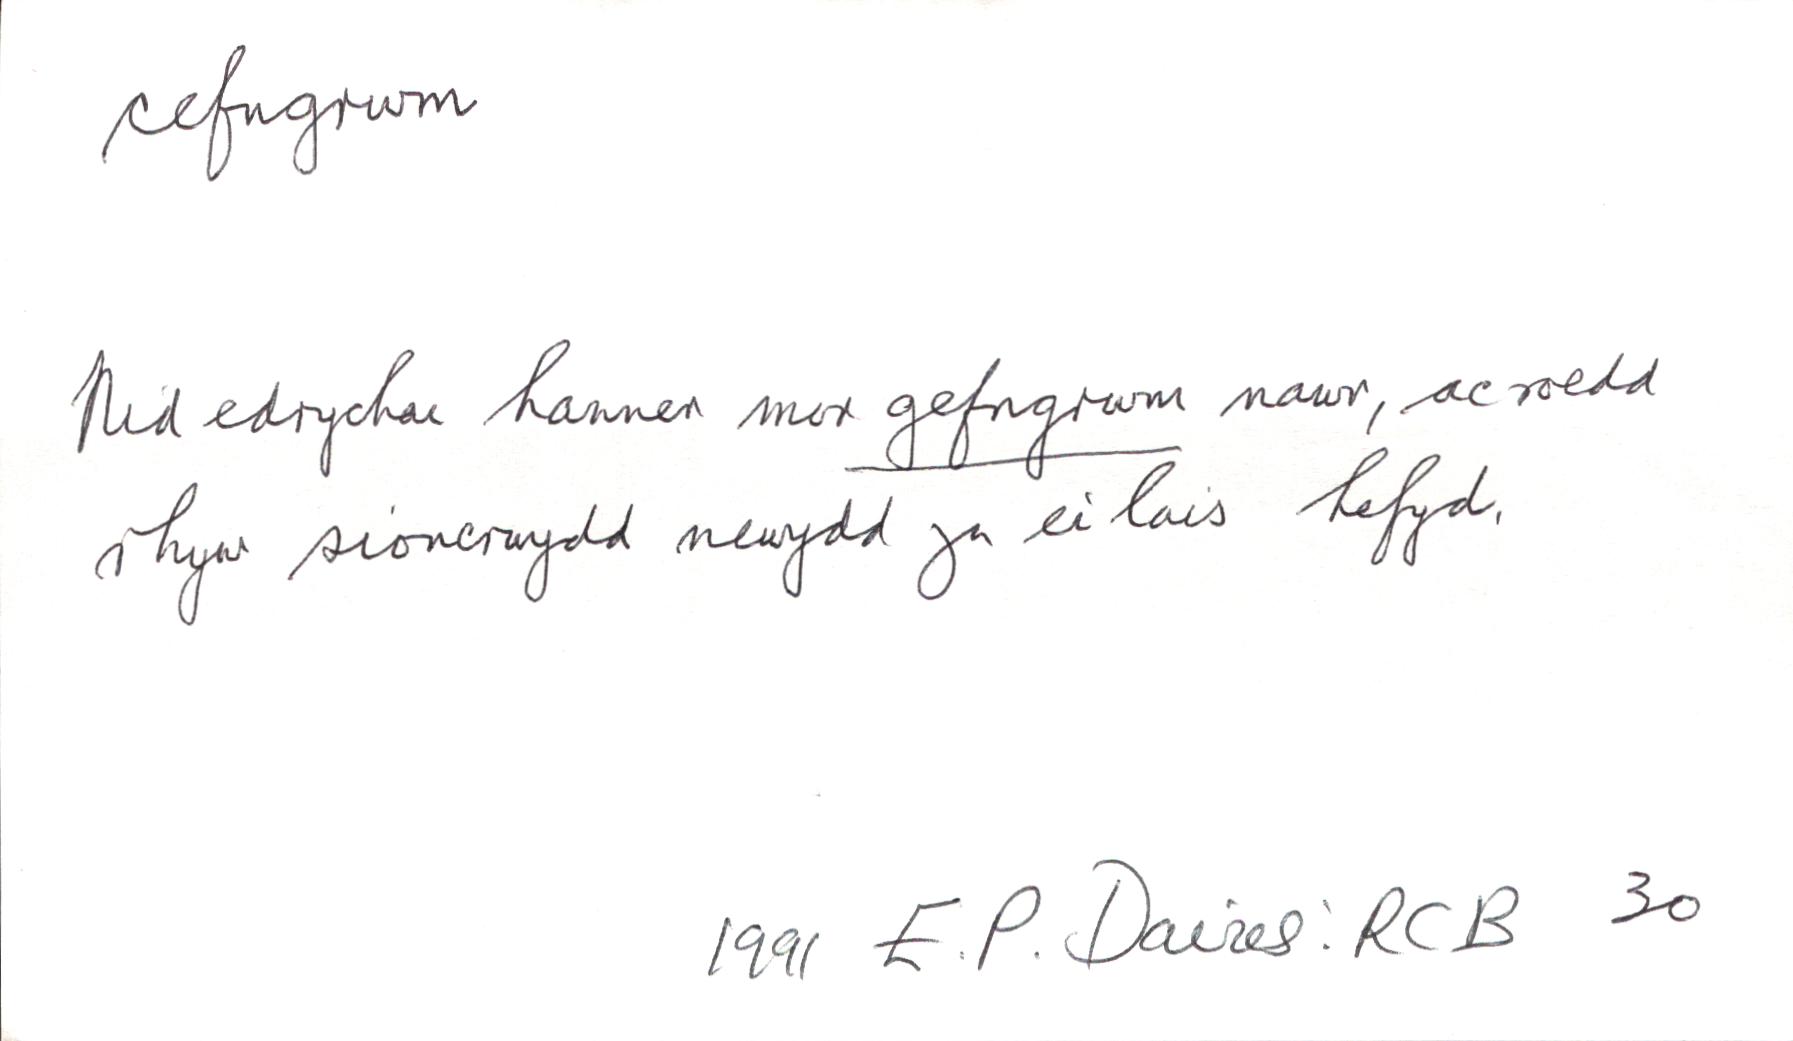 cefngrwm
Nid edrychai hanner mor gefngrwm nawr, ac roedd
rhyw sioncrwydd newydd yn ei lais hefyd.
1991 E.P. Davies: RCB 30